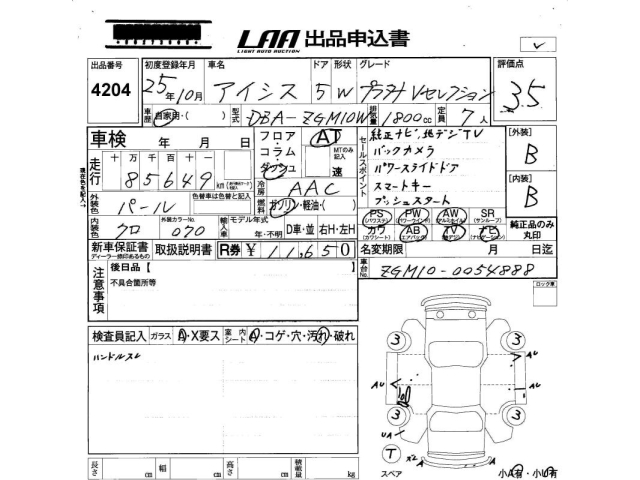 LAA 出品申込書
LIGHT AUTO AUCTION
出品番号 初度登録年月 車名 ドア 形状 グレード 評価点
4204 25年10月 アイシス 5 W プラタナ Vセレクション 3.5
車歴 自家用・( ) 型式 DBA-ZGM10W 排気量 1800cc 定員 7人
車検 年 月 日
フロア・コラム・ダッシュ AT MTのみ記入 速
走行 十万千百十一
85649 km
冷房 AAC
燃料 ガソリン・軽油・( )
外装色 パール 色替車は色替と記入
内装色 クロ 外装カラーNo. 070 輸入車 モデル年式 年・不明 D車・並 右H・左H
セールスポイント
純正ナビ、地デジTV
バックカメラ
パワースライドドア
スマートキー
プッシュスタート
【外装】
B
【内装】
B
PS PW AW SR
カワ AB TV ナビ
純正品のみ丸印
新車保証書 取扱説明書 R券 ¥11,650
ディーラー捺印あるもの
名変期限 月 日迄
車台No. ZGM10-0054888
注意事項
後日品【
不具合箇所等
ロック車
検査員記入 ガラス A・X要ス 室内シート A・コゲ・穴・汚れ・破れ
ハンドルスレ
3 3
AU
AU AU
3 3
UA
T
スペア
x2
小A有・小U有
長さ cm 幅 cm 高さ cm 積載量 kg